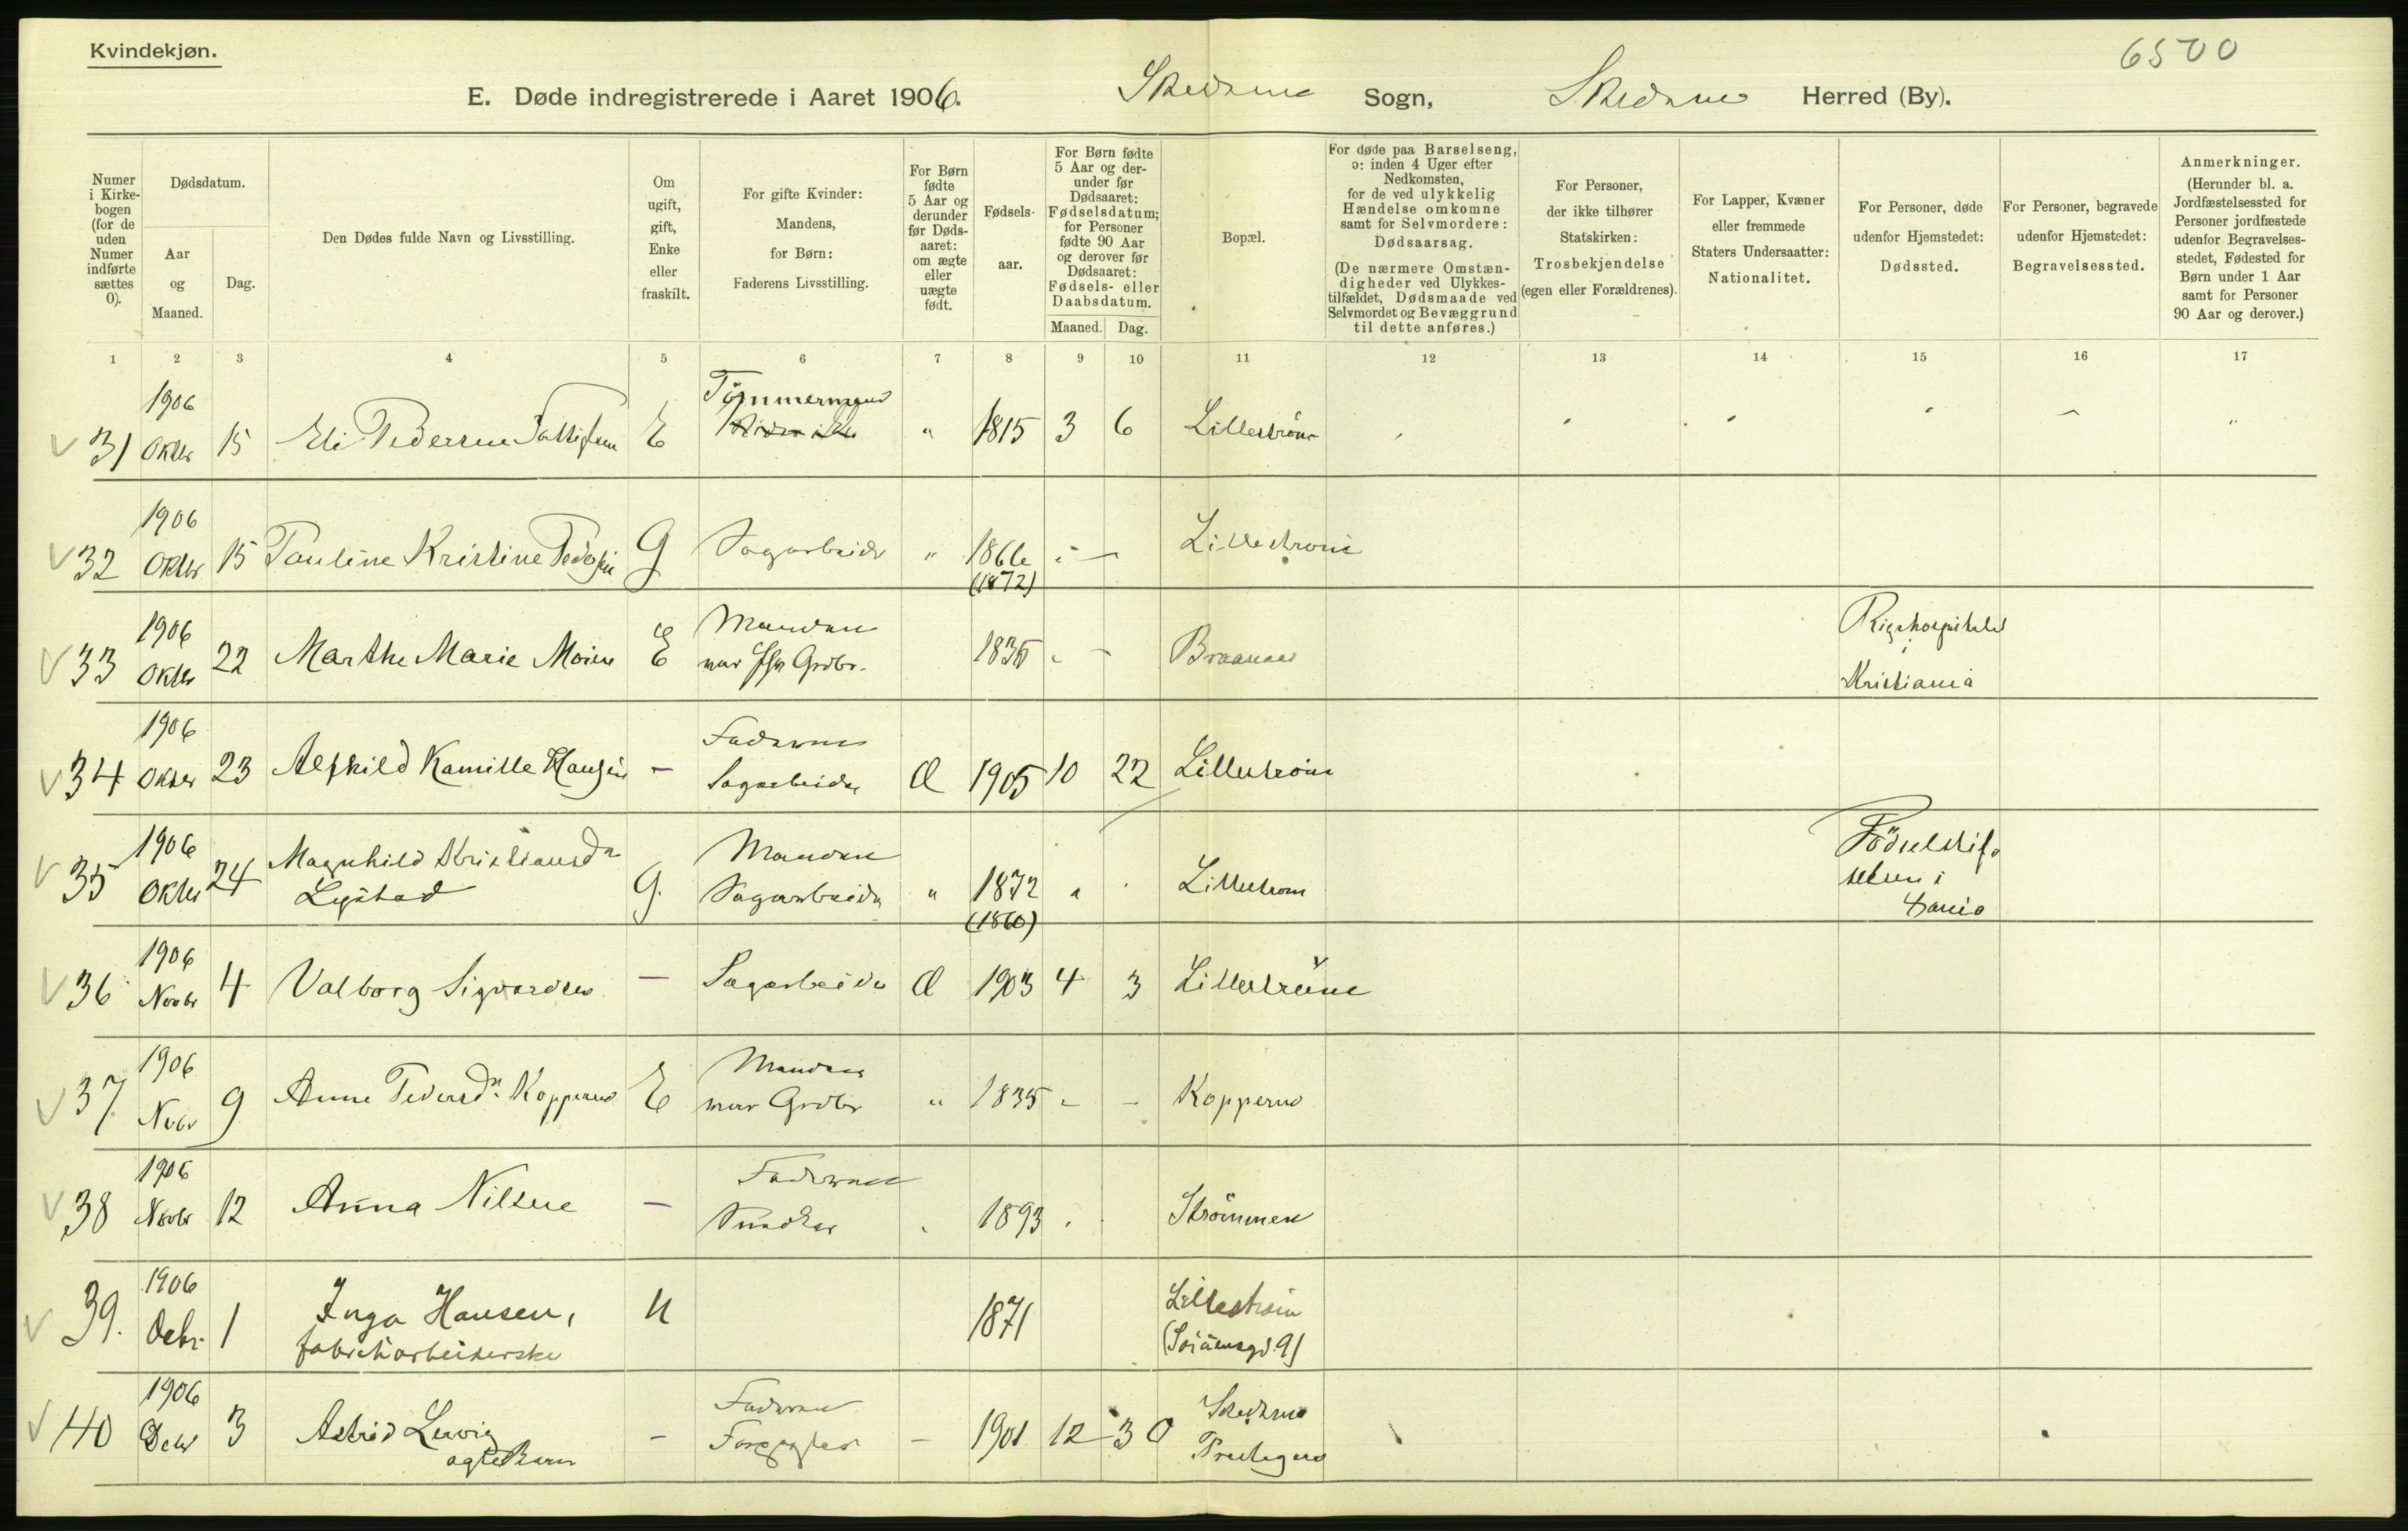 Kvindekjøn.
6500
E. Døde indregistrerede i Aaret 1906. Skedsmo Sogn, Skedsmo Herred (By).
Numer i Kirkebogen (for de uden Numer indførte sættes 0).
Dødsdatum.
Aar og Maaned.
Dag.
Den Dødes fulde Navn og Livsstilling.
Om ugift, gift, Enke eller fraskilt.
For gifte Kvinder: Mandens, for Børn: Faderens Livsstilling.
For Børn fødte 5 Aar og derunder før Dødsaaret: om ægte eller uægte født.
Fødselsaar.
For Børn fødte 5 Aar og derunder før Dødsaaret: Fødselsdatum; for Personer fødte 90 Aar og derover før Dødsaaret: Fødsels- eller Daabsdatum.
Maaned. Dag.
Bopæl.
For døde paa Barselseng, ɔ: inden 4 Uger efter Nedkomsten, for de ved ulykkelig Hændelse omkomne samt for Selvmordere: Dødsaarsag.
(De nærmere Omstændigheder ved Ulykkestilfældet, Dødsmaade ved Selvmordet og Bevæggrund til dette anføres.)
For Personer, der ikke tilhører Statskirken: Trosbekjendelse (egen eller Forældrenes).
For Lapper, Kvæner eller fremmede Staters Undersaatter: Nationalitet.
For Personer, døde udenfor Hjemstedet: Dødssted.
For Personer, begravede udenfor Hjemstedet: Begravelsessted.
Anmerkninger.
(Herunder bl. a. Jordfæstelsessted for Personer jordfæstede udenfor Begravelsesstedet, Fødested for Børn under 1 Aar samt for Personer 90 Aar og derover.)
1 2 3 4 5 6 7 8 9 10 11 12 13 14 15 16 17
31 1906 Oktbr 15 Eli Pedersen E Tömmermand " 1815 3 6 Lilleström
32 1906 Oktbr 15 Pauline Kristine Pedersen G Sagarbeider " 1866 (1872) Lilleström
33 1906 Oktbr 22 Marthe Marie Moien E Manden var Grdbr. 1835 Braanaas Rigshospitalet i Kristiania
34 1906 Oktbr 23 Alfhild Kamille Hansen - Faderen Sagarbeider Æ 1905 10 22 Lilleström
35 1906 Oktbr 24 Magnhild Kristiansdr Lystad G. Manden Sagarbeider " 1872 (1860) Lilleström Födselsstiftelsen i
36 1906 Novbr 4 Valborg Sigvardsen - Sagarbeider Æ 1903 4 3 Lilleström
37 1906 Novbr 9 Anne Pedersdr. Kopperud E Manden var Grdbr " 1835 Kopperud
38 1906 Novbr 12 Anna Nilsen - Faderen Snedker 1893 Strömmen
39. 1906 Decbr. 1 Inga Hansen, fabrikarbeiderske U 1871 Lilleström
40 1906 Decbr 3 Astrid ægte Barn - Faderen Forpagter - 1901 12 30 Skedsmo Prestegaard